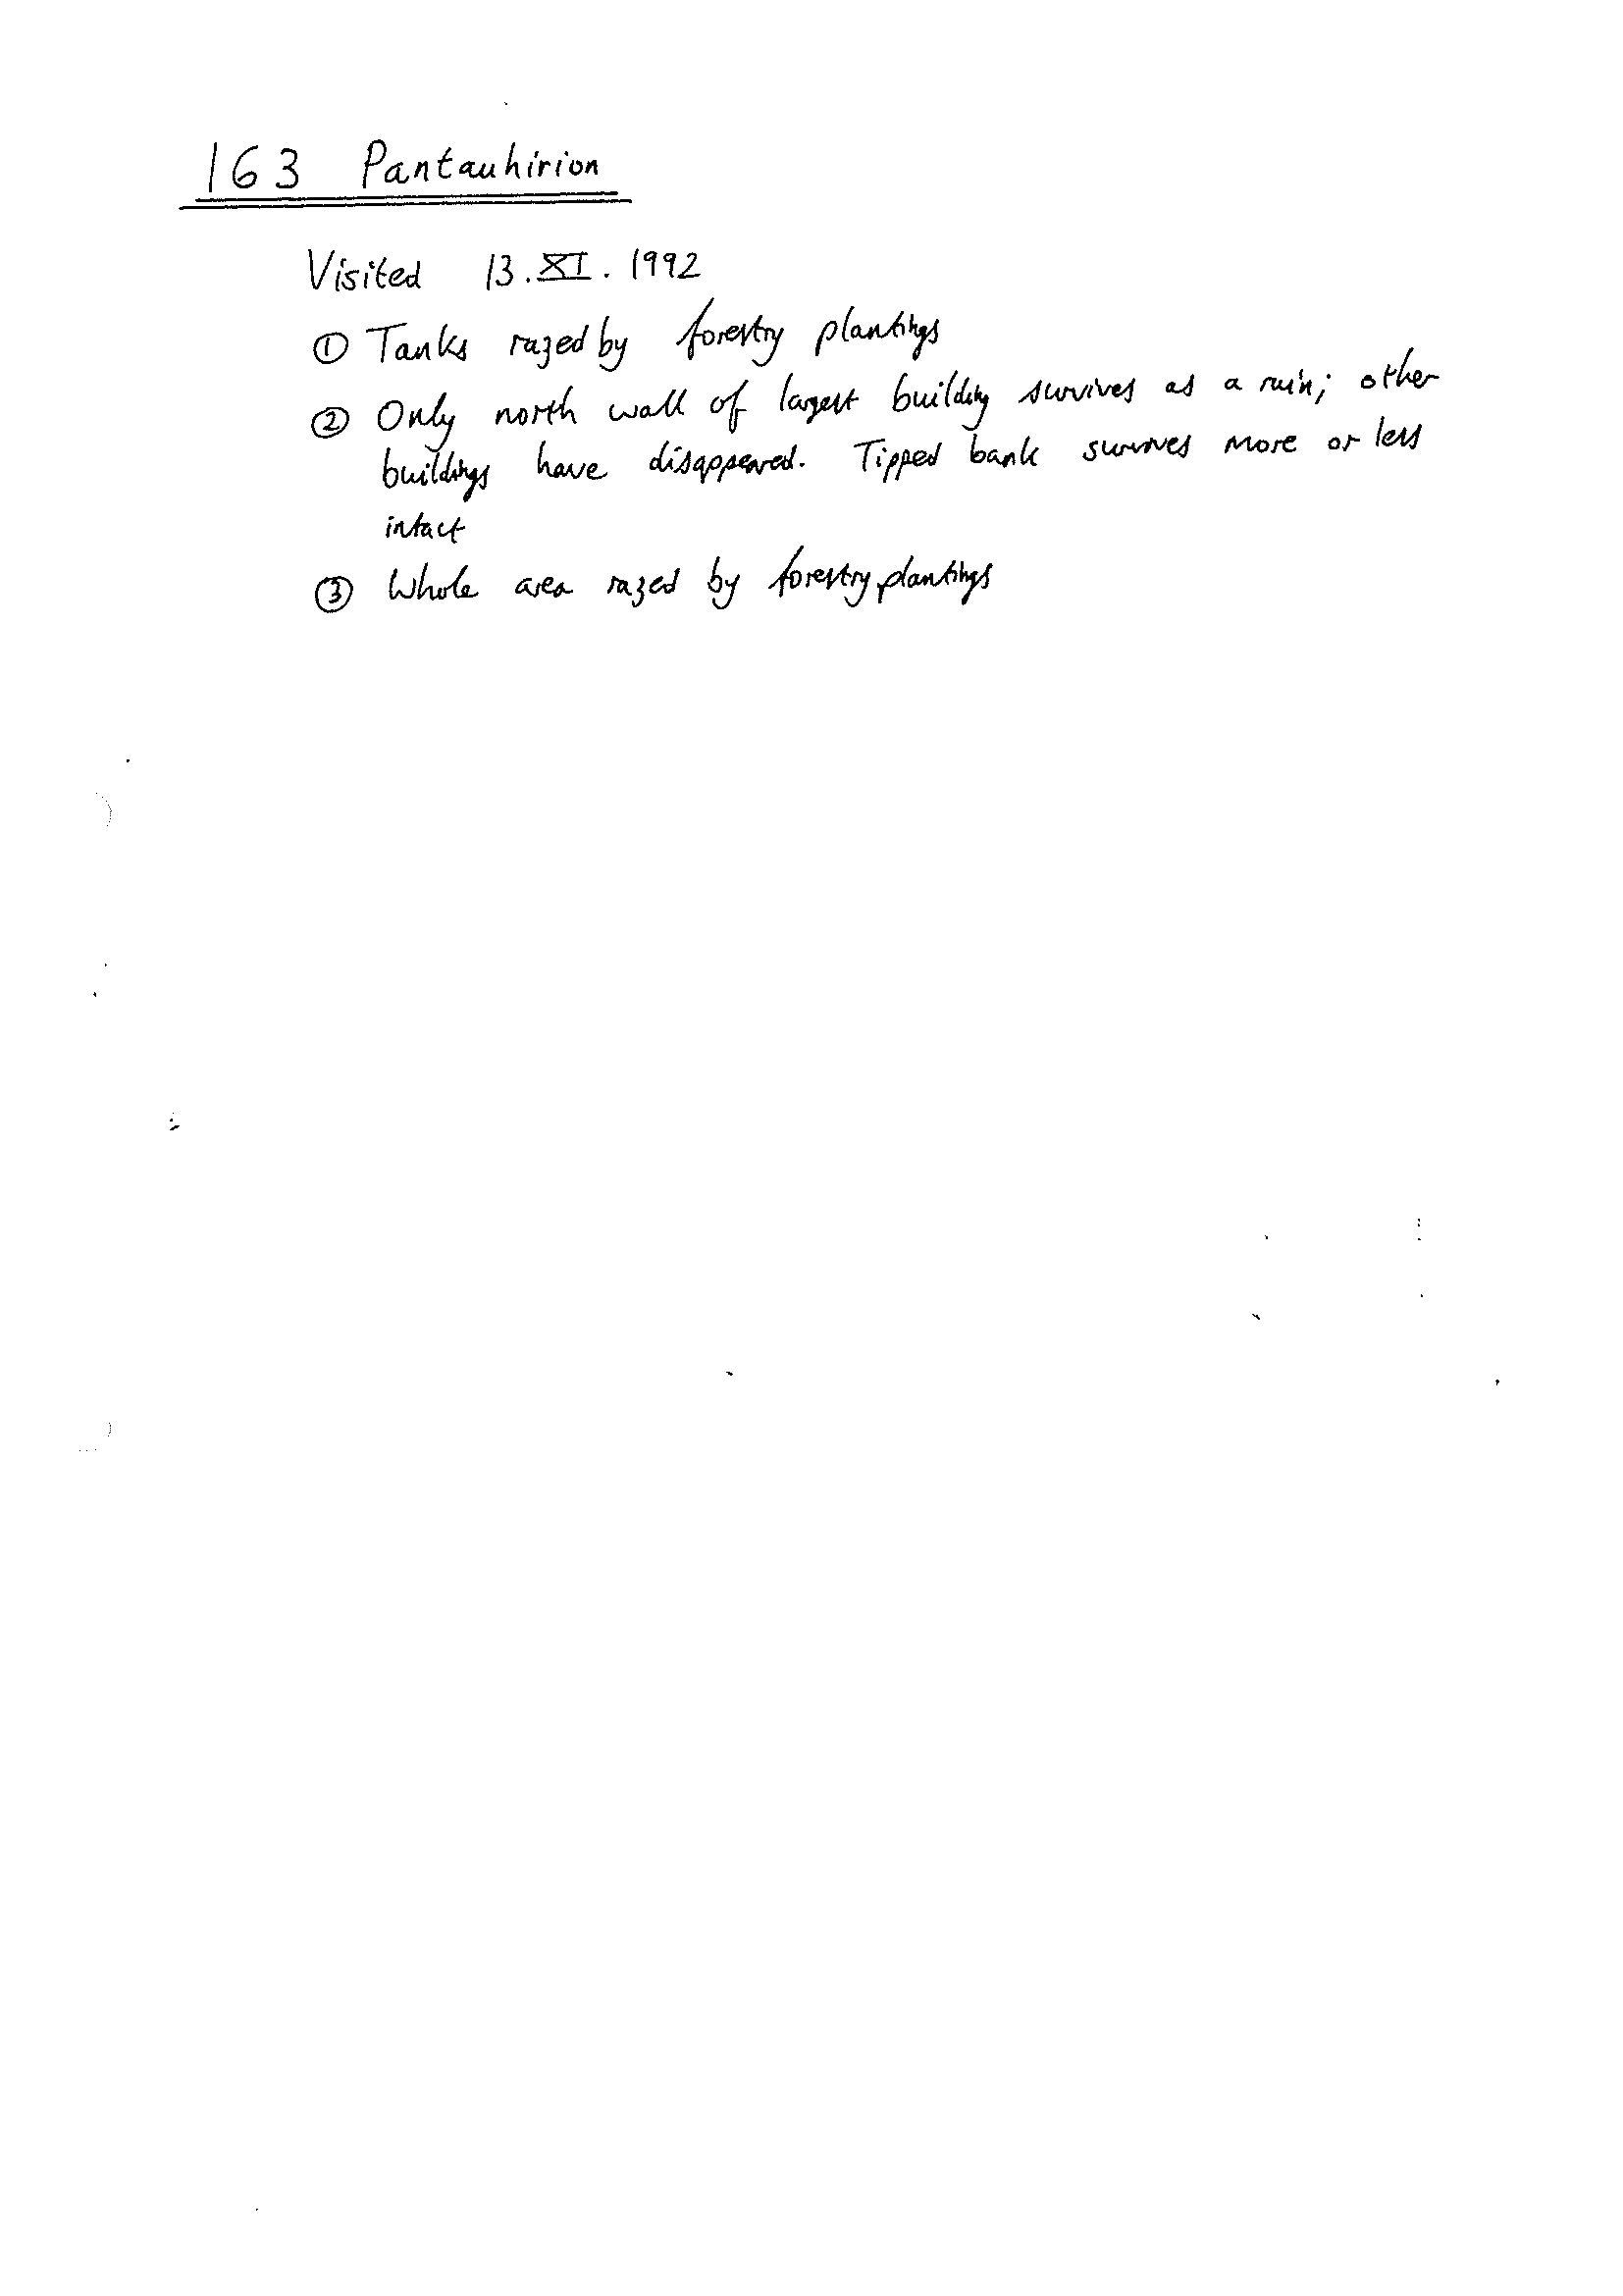 163 Pantauhirion
Visited 13.XI.1992
① Tanks razed by forestry plantings
② Only north wall of largest building survives as a ruin; other
buildings have disappeared. Tipped bank survives more or less
intact
③ Whole area razed by forestry plantings